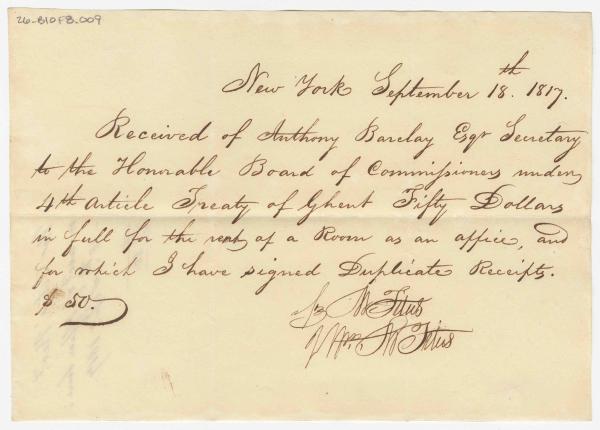 26-B10F8.009
New York September 18th. 1817.
Received of Anthony Barclay Esqr Secretary
to the Honorable Board of Commissioners under
4th Article Treaty of Ghent Fifty Dollars
in full for the rent of a Room as an office, and
for which I have signed Duplicate Receipts.
$ 50.
Titus
Wm Titus